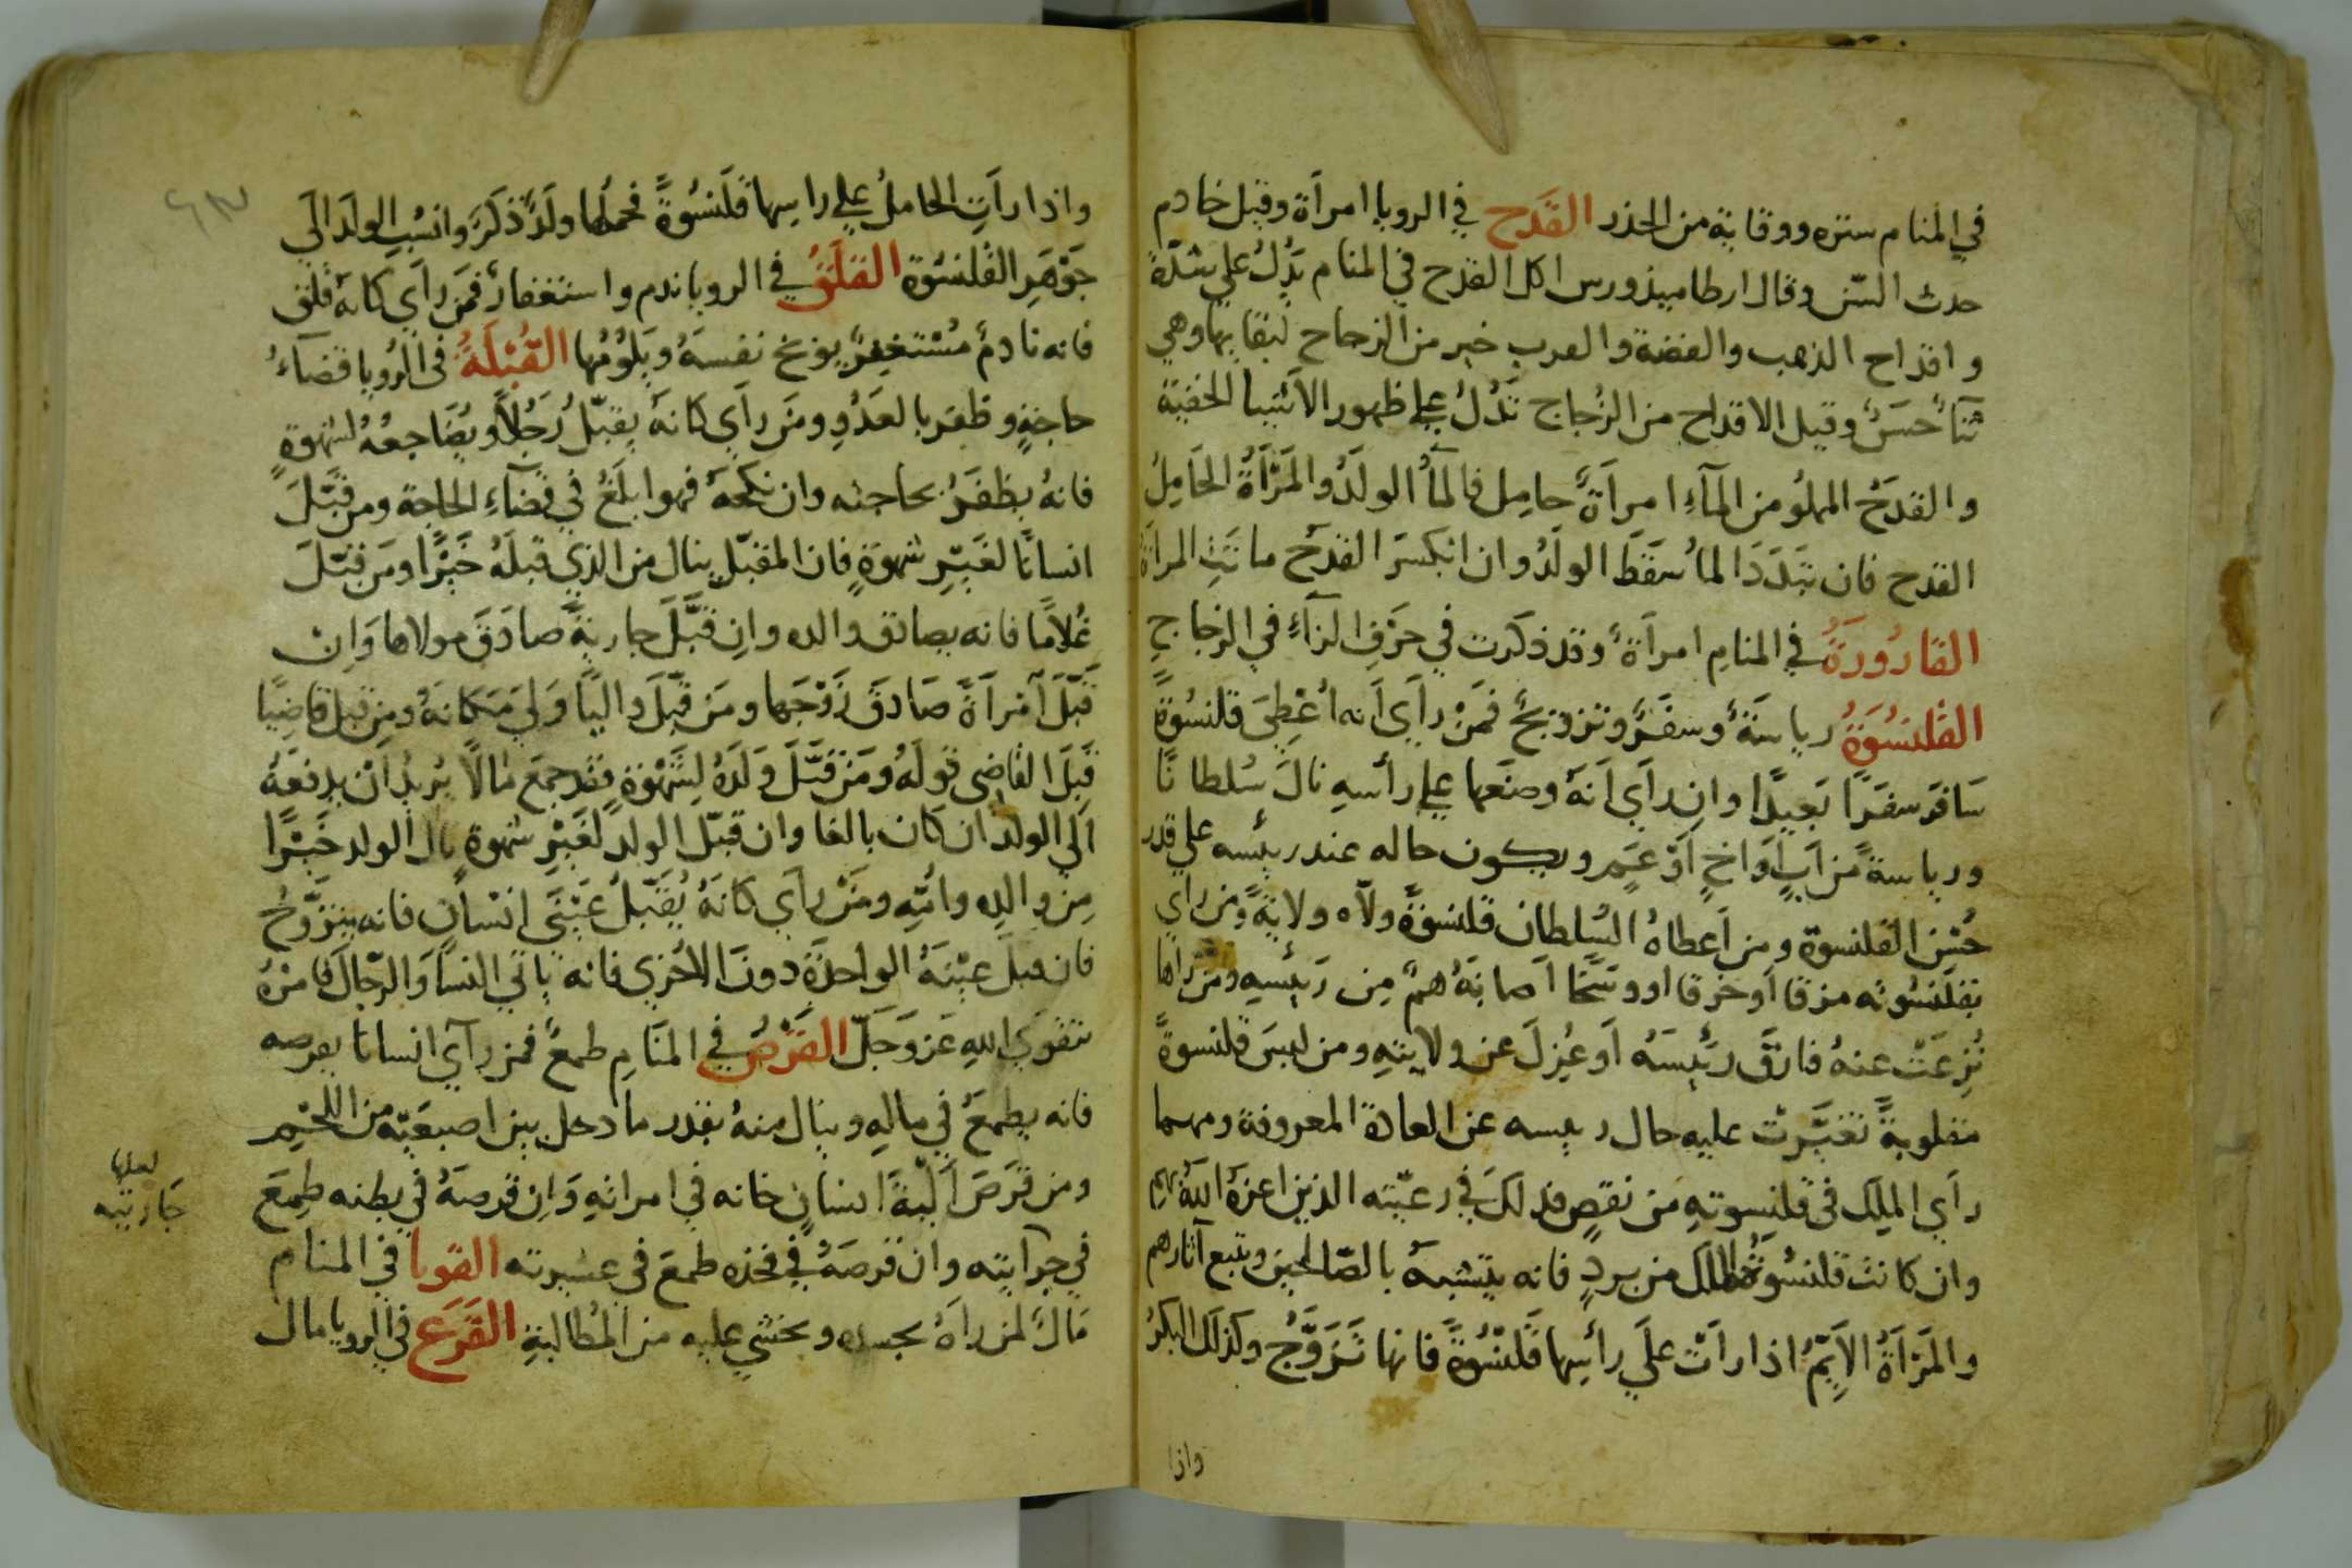 في المنام ستره ووقاية من الحذر القَدح في الرويا امرأة وقيل خادم
حدث السّن وقال ارطاميذورس اكل القدح في المنام يَدُلُ علي شدّة
واقداح الذهب والفضة والعرب خير من الزجاج لبقايها وهي
ثنآ حسَنٌ وقيل الاقداح من الزُجاج تَدُلُ علي ظهور الاَشيا الخفية
والقدَحُ المملُو من المآءِ امرأة حامِل فالمآُ الولَدُ والمَرْأةُ الحَامِلُ
القدح فان تبَدَدَ المآُ سَقَطَ الولَدُ وان انكسَرَ القدَح ماتَتِ المراة
القارُورَةُ في المنامِ امرأة وقد ذكرت في حَرْفِ الزآءِ في الزجاجِ
القلنسُوَةُ رياسَةٌ وسفَرٌ وتزويجٌ فمَنْ رأَي اَنه اُعْطِيَ قلنسُوةً
سَافرَ سفَرًا بَعيدًا وان رأي اَنَهُ وضعَها علي رأسِهِ نالَ سُلطانًا
ورياسةً من اَبٍ اَواخٍ اَوْ عَمٍ ويكون حاله عند رييسه علي قدر
حُسْنِ القلنسوة ومن اَعطاهُ السُلطان قلنسوَةً ولاّه ولايةً ومن رأي
بقلَنسُوته مزقا اَو خرقا او وسَخًا اَصابَهُ همٌ مِن رَيئسِهِ ومَنْ راها
نُزِعَتْ عنهُ فارَقَ ريَئِسَهُ اَو عُزِلَ عن ولايتِهِ ومن لبسَ قلنسوةً
مقلوبةً تغيَّرتْ عليه حال رييسه عن العادة المعروفة ومهما
رأي الملِك في قلنِسوتهِ من نقصٍ فذلكَ في رعيّته الذين اعزهُ اللّهُ بهم
وان كانت قلنسُوةُ الملك من بردٍ فانه يتشبهُ بالصّالحين ويتبع آثارهم
والمَرْأةُ الاَيِّمُ اذا رأتْ علَي رأسِها قَلنْسُوةً فانها تَزَوَّجُ وكذلكَ البكرُ
واذا
واذا رأَتِ الحَاملُ علي راسِها قَلَنسُوةً فحملُها ولَدٌ ذكَرٌ وانسُبِ الولَدَ الَي
جَوْهَرِ القلنسُوَة القَلَقُ في الرويا ندم واستغفارٌ فمَن رأَي كانهُ قلق
فانه نادمٌ مُسْتغفِرٌ يوَبخ نفسَهُ ويَلوُمُها القُبْلَةُ في الرُويا قضآءُ
حاجةٍ وظفَر بالعَدُوِ ومَن رأَي كانهُ يقبّلُ رَجُلًا ويُضَاجعُهُ لشهوةٍ
فانهُ يظفَرُ بحاجته وان نكحهُ فهو ابلَغُ في قضآءِ الحاجة ومن قبَّلَ
انسانًا لغَيْرِ شهوَةٍ فان المقبّل ينال من الذي قبلهُ خَيْرًا ومَن قبّلَ
غُلامًا فانه يصادق والده وانِ قبَّلَ جاريةً صادَقَ مولاها وَانْ
قَبَّلَ اَمْرأةً صَادقَ زَوْجَها ومَن قبَّلَ واليًا وَلِيَ مَكانهُ ومن قبل قاضِيًا
قَبِلَ القَاضِي قولَهُ ومَن قبَّلَ وَلَدَهُ لِشَهْوَةٍ فقد جمعَ مَالًا يُريدُ اَنْ يدفعَهُ
اَلي الولد ان كان بالغا وان قبّل الولد لغَيْرِ شهوةٍ نال الولد خَيْرًا
مِن والدِهِ واُمِّهِ ومَنْ رأي كانهُ يُقَبّلُ عَيْنَي انسَانٍ فانه يتزَوَّجُ
فان قبلَ عيْنهُ الواحدَة دونَ الاُخرَي فانه ياتي النسآ وَالرّجالَ فامُرْهُ
بتقوَي اللهِ عَزوَجَلّ القَرْصُ في المنَامِ طمعٌ فمن رأي انسانا يقرصه
فانه يطمعُ في مالِهِ وينال منهُ بقدر ما دخل بين اصبعَيْه من اللَّحْمِ
ومن قرَصَ اَلْيَةَ انسانٍ خانه في امراتهِ وَاِن قرصهُ في بطنه طمِعَ
في جرآيته وان قرصهُ في فخذه طمعَ في عشيرته القوبا في المنام
مَالٌ لمن رأهُ بجسده ويخشي عليه من المُطالبةِ القَرَع في الرويا مال
لعلها
جَاريته